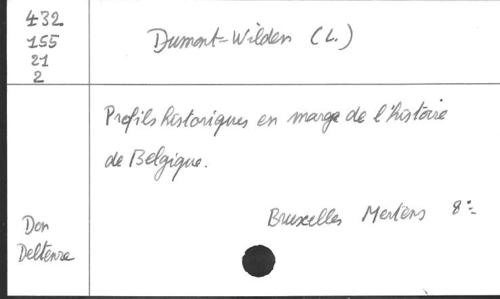 432
155
21
2
Dumont=Wilden (L.)
Profils historiques en marge de l'histoire
de Belgique.
Bruxelles Mertens 8º
Don
Deltenre